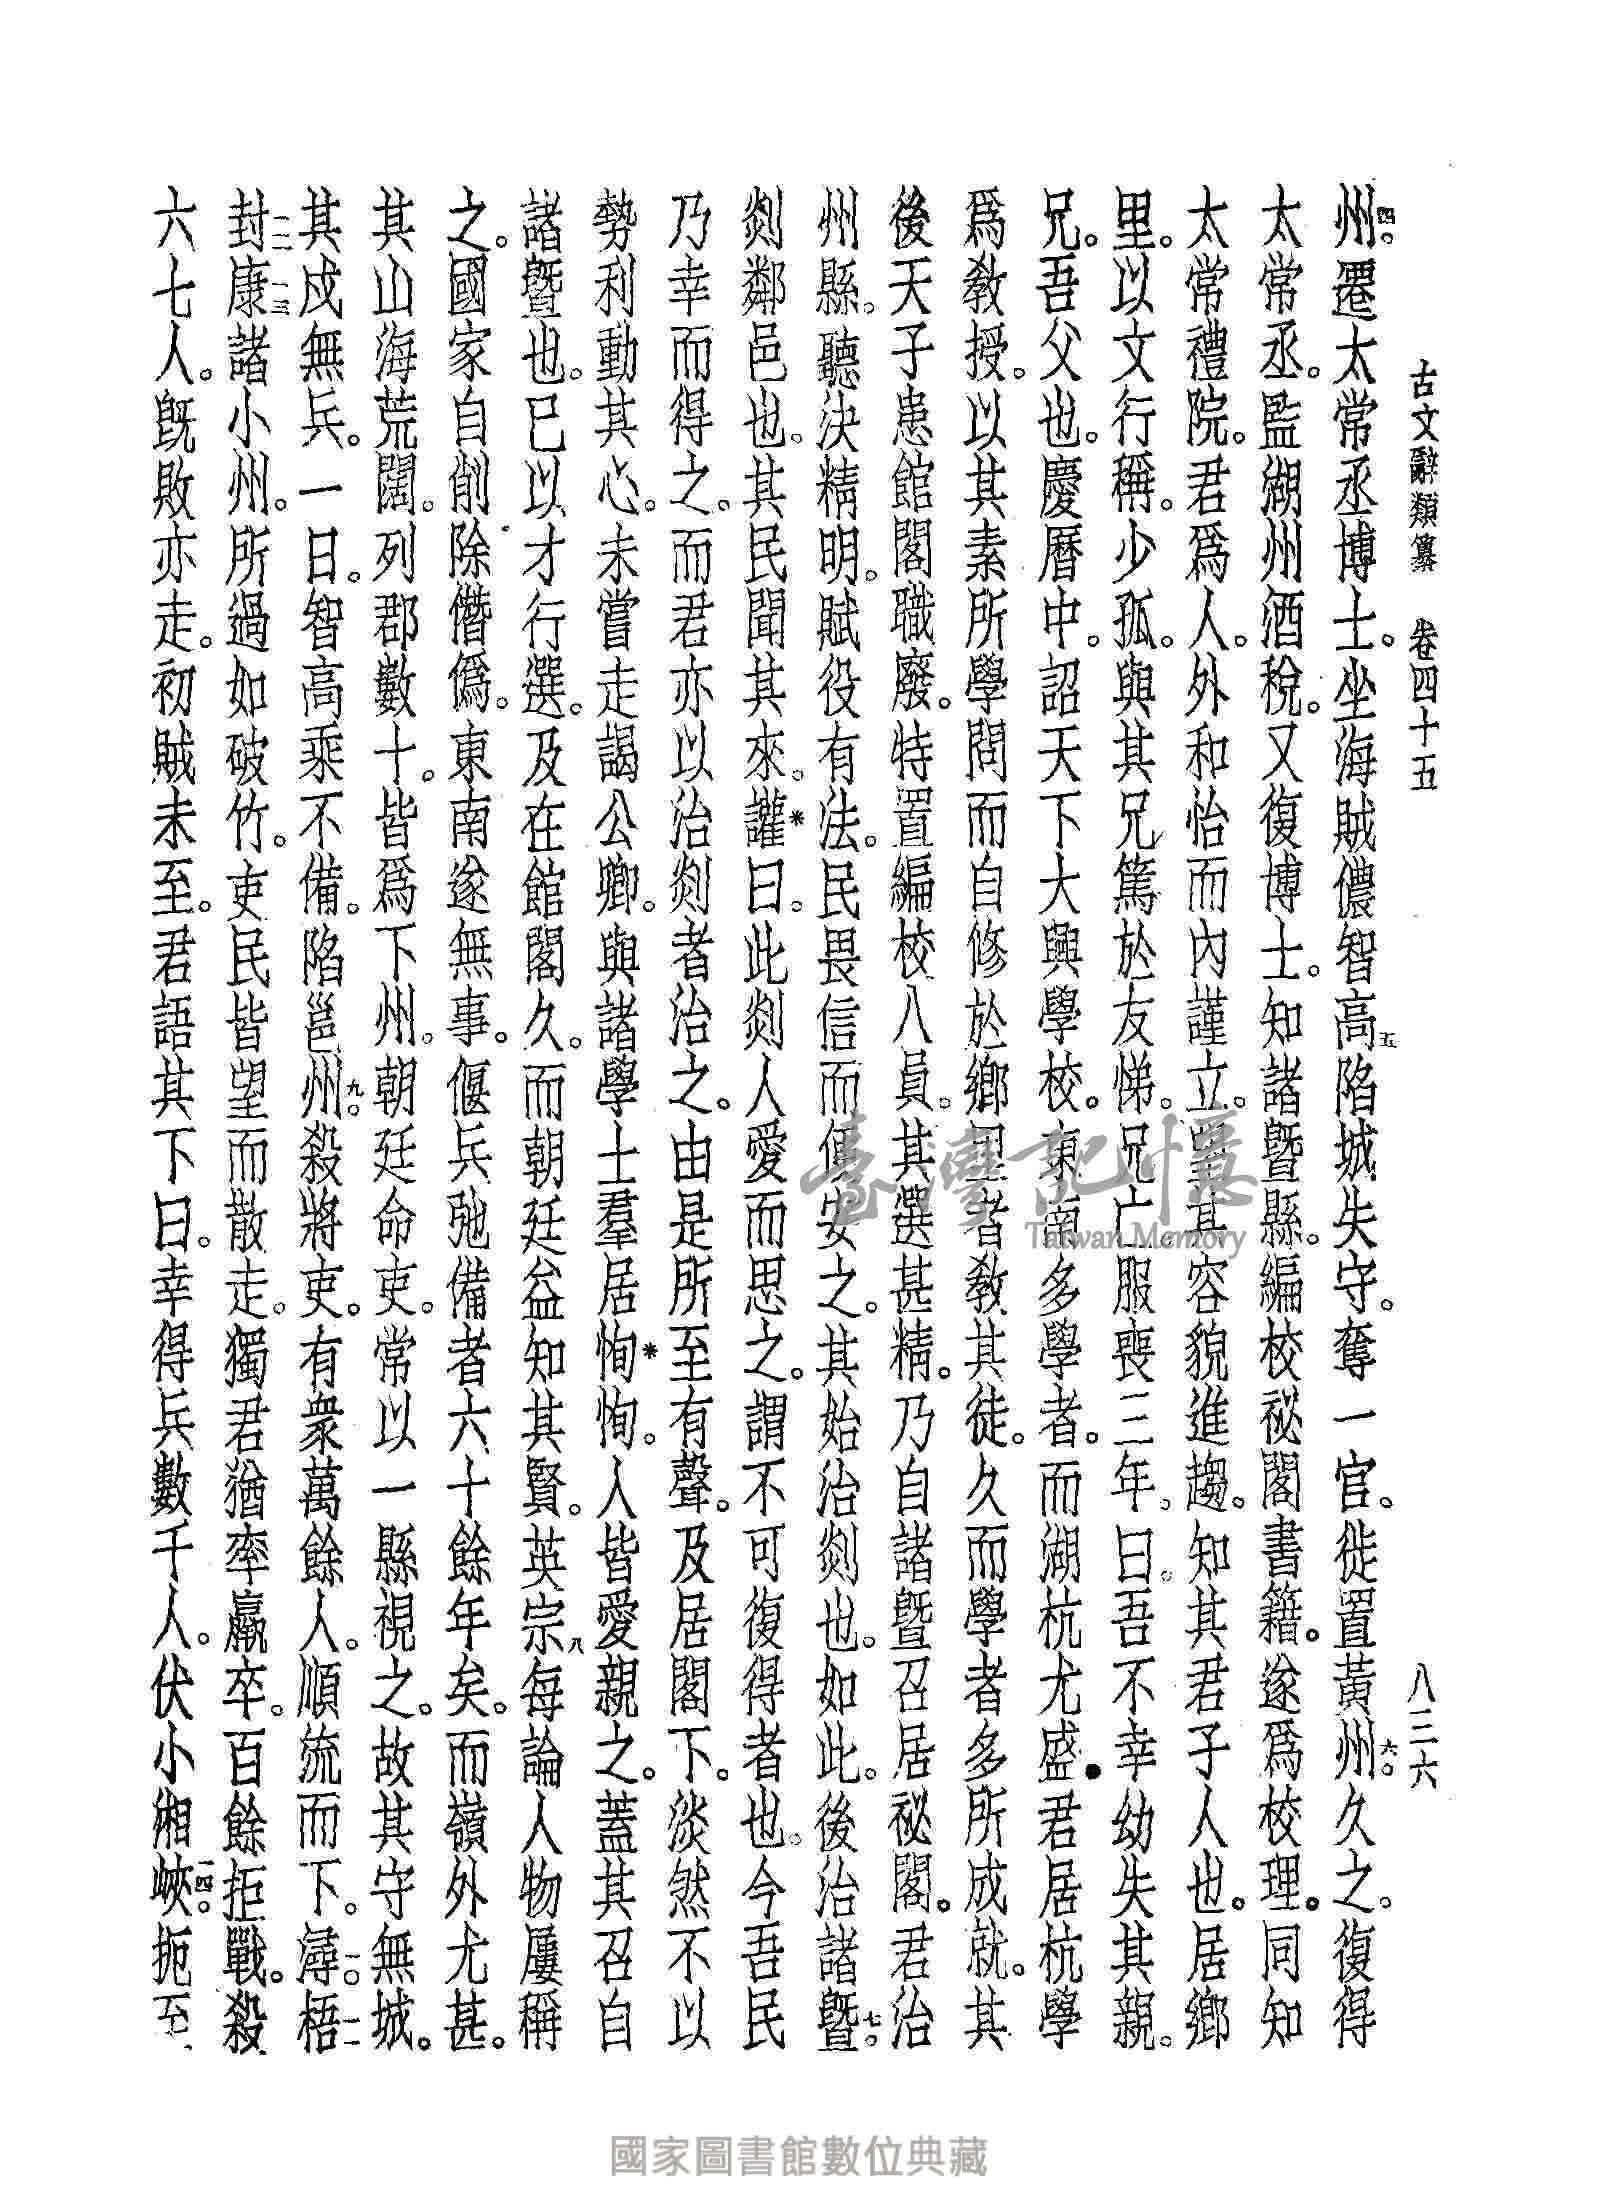 古文辭類纂　卷四十五　八三六
州四。遷太常丞博士。坐海賊儂智高五陷城失守。奪一官。徙置黃州六。久之。復得
太常丞。監湖州酒稅。又復博士。知諸暨縣。編校祕閣書籍。遂爲校理。同知
太常禮院。君爲人。外和怡而內謹立。望其容貌進趨。知其君子人也。居鄉
里。以文行稱。少孤。與其兄篤於友悌。兄亡。服喪三年。曰。吾不幸幼失其親。
兄。吾父也。慶曆中。詔天下大興學校。東南多學者。而湖杭尤盛。君居杭學
爲教授。以其素所學問而自修於鄉里者。教其徒。久而學者多所成就。其
後天子患館閣職廢。特置編校八員。其選甚精。乃自諸暨召居祕閣。君治
州縣。聽決精明。賦役有法。民畏信而便安之。其始治剡也。如此。後治諸暨七。
剡鄰邑也。其民聞其來。讙*曰。此剡人愛而思之。謂不可復得者也。今吾民
乃幸而得之。而君亦以治剡者治之。由是所至有聲。及居閣下。淡然不以
勢利動其心。未嘗走謁公卿。與諸學士羣居恂*恂。人皆愛親之。蓋其召自
諸暨也。已以才行選。及在館閣久。而朝廷益知其賢。英宗八每論人物屢稱
之。國家自削除僭僞。東南遂無事。偃兵弛備者六十餘年矣。而嶺外尤甚。
其山海荒闊。列郡數十。皆爲下州。朝廷命吏。常以一縣視之。故其守無城。
其戍無兵。一日。智高乘不備。陷邕州九。殺將吏。有衆萬餘人。順流而下。潯一〇梧一一
封一二康一三諸小州。所過如破竹。吏民皆望而散走。獨君猶率羸卒。百餘拒戰。殺
六七人。既敗亦走。初賊未至。君語其下曰。幸得兵數千人。伏小湘峽一四。扼至
臺灣記憶
Taiwan Memory
國家圖書館數位典藏